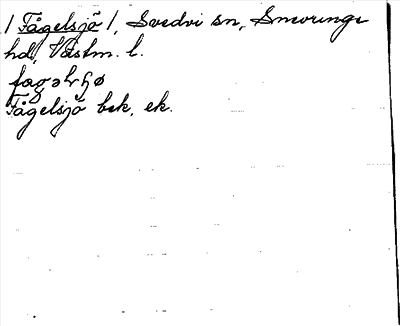 / Fågelsjö /, Svedvi sn, Snevringe
hd, Västm. l.
Fågelsjö bsk, ek.